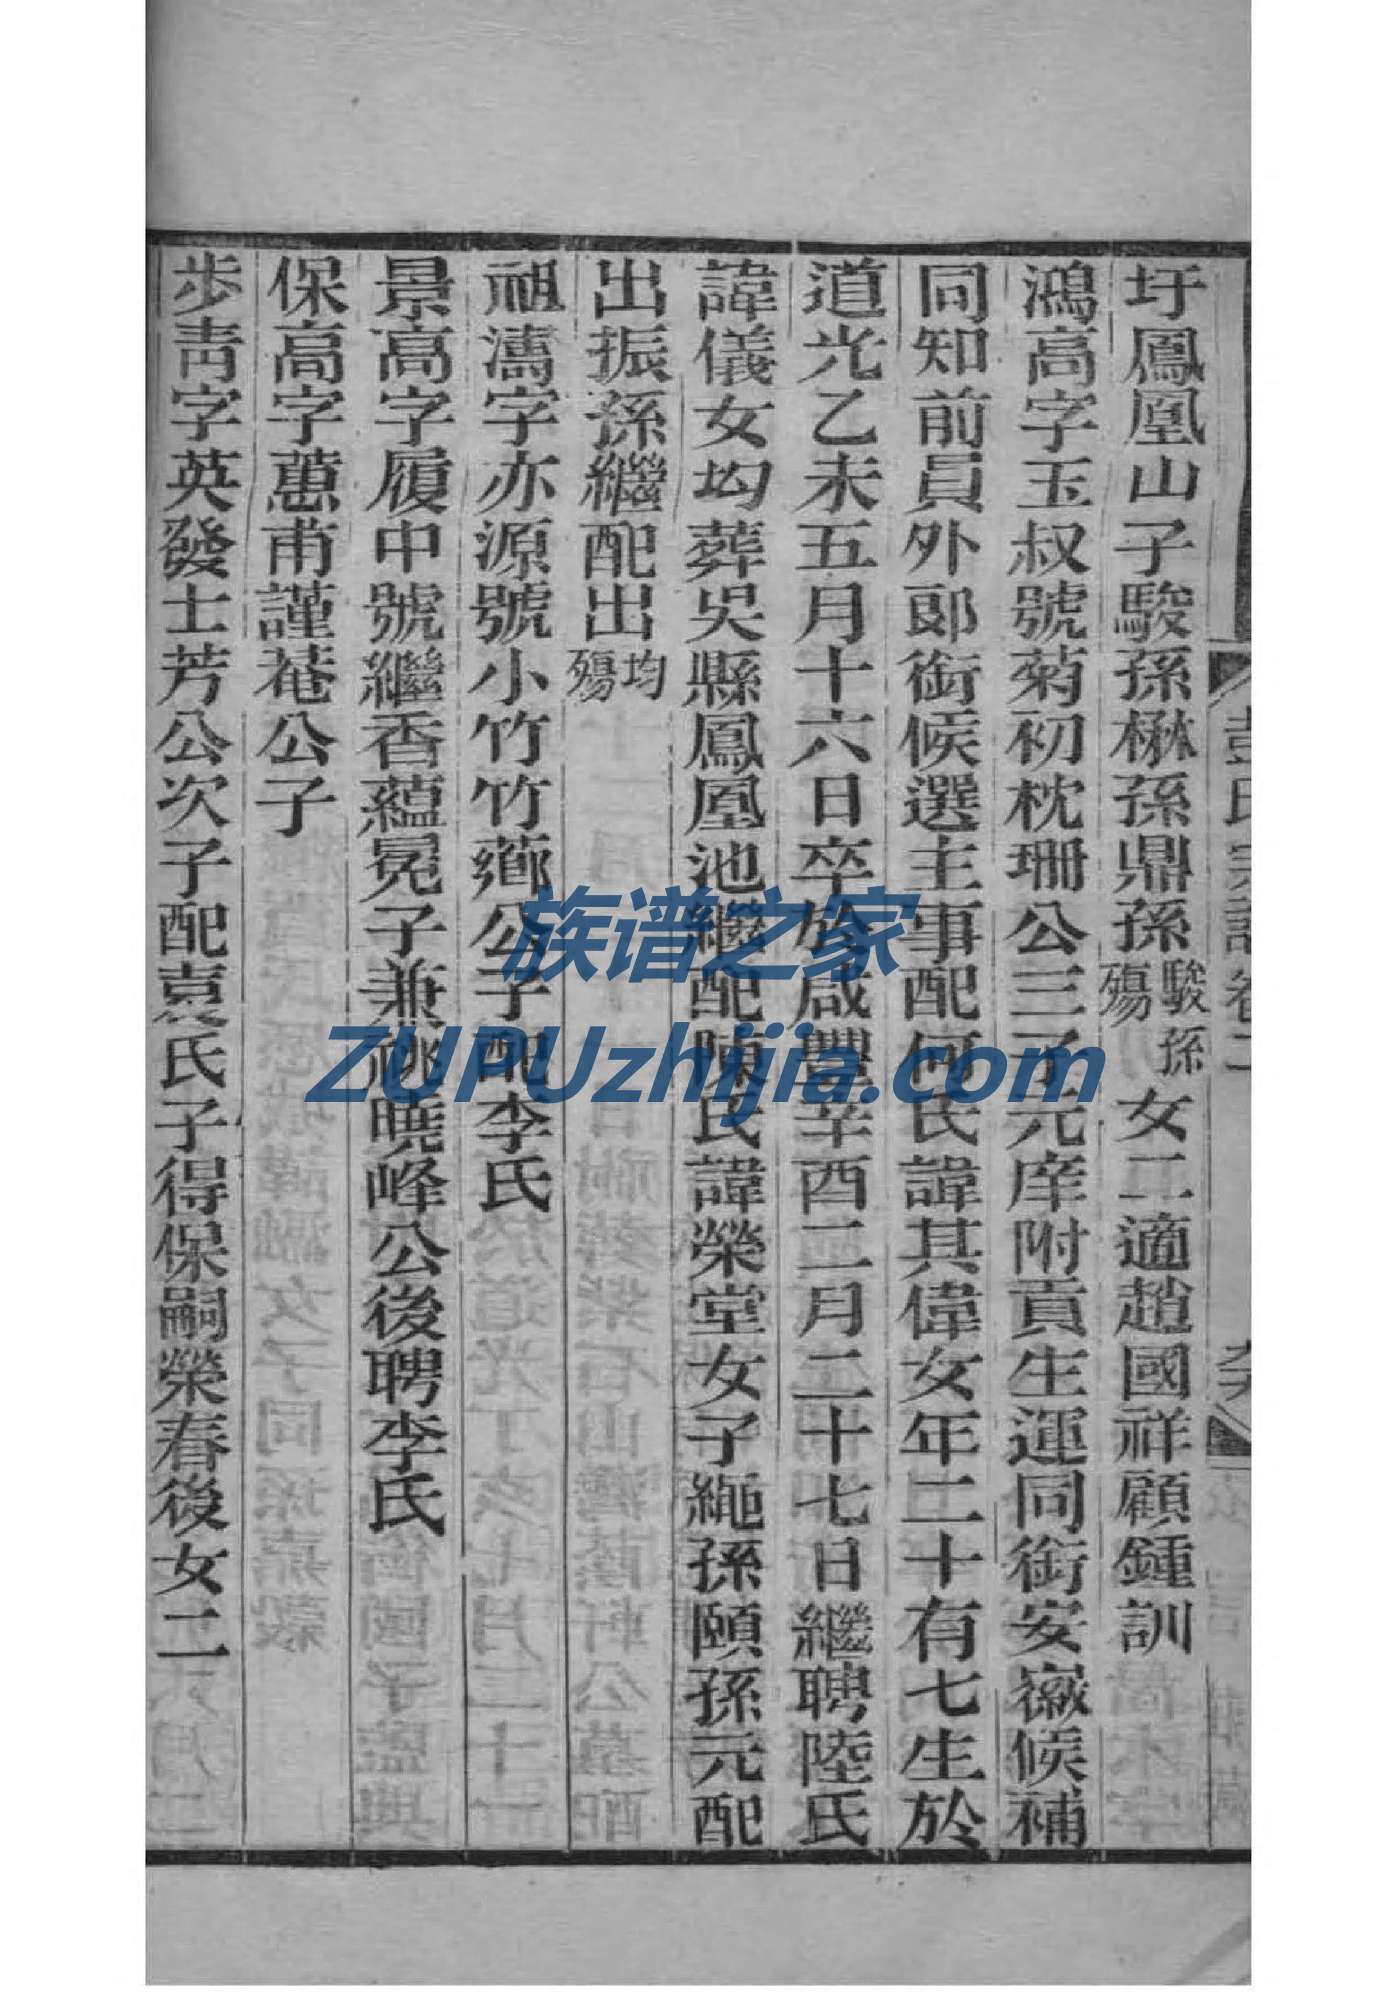 圩鳳凰山子駿孫楙孫鼎孫駿孫殤女二適趙國祥顧鍾訓
鴻高字玉叔號菊初枕珊公三子元庠附貢生運同銜安徽候補
同知前員外郎銜候選主事配何氏諱其偉女年二十有七生於
道光乙未五月十六日卒於咸豐辛酉二月二十七日繼聘陸氏
諱儀女均葬吳縣鳳凰池繼配陳氏諱榮堂女子繩孫頤孫元配
出振孫繼配出均殤
祖濤字亦源號小竹竹薌公子配李氏
景高字履中號繼香蘊冕子兼祧曉峰公後聘李氏
保高字蕙甫謹菴公子
步青字英發士芳公次子配袁氏子得保嗣榮春後女二
彭氏宗譜卷二
族谱之家
ZUPUzhijia.com